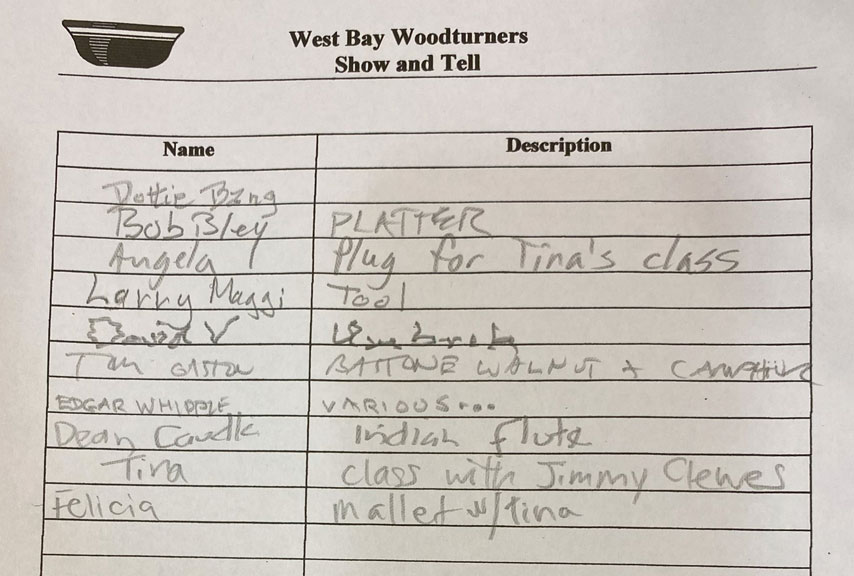 West Bay Woodturners
Show and Tell
Name Description
Dottie
Bob Bley PLATTER
Angela Plug for Tina's class
Larry Maggi Tool
David V
WALNUT
EDGAR WHIPPLE VARIOUS...
Dean Caudle Indian flute
Tina class with Jimmy Clewes
Felicia mallet w/tina